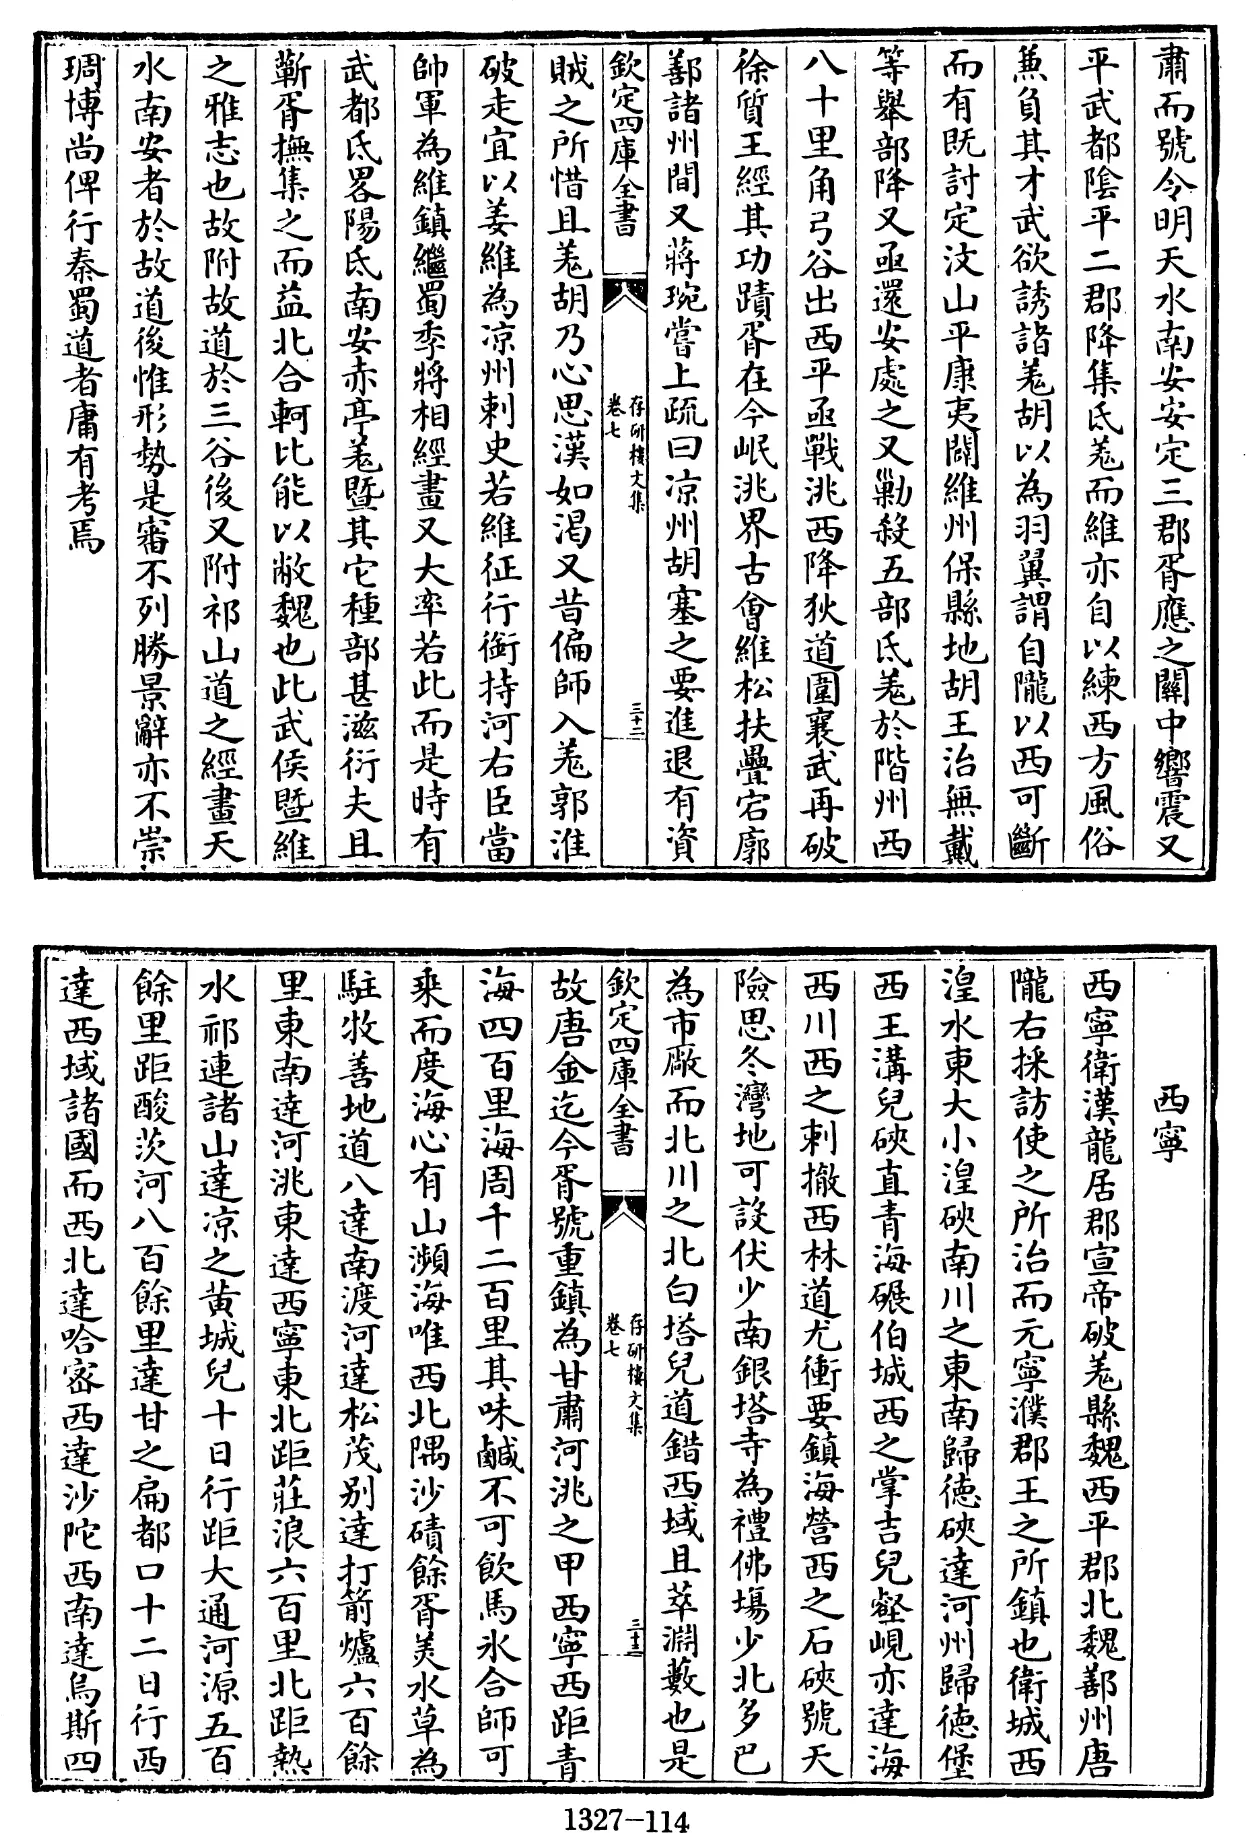 肅而號令明天水南安安定三郡胥應之關中響震又
平武都陰平二郡降集氐羗而維亦自以練西方風俗
兼負其才武欲誘諸羗胡以為羽翼謂自隴以西可斷
而有既討定汶山平康夷闢維州保縣地胡王治無戴
等舉部降又亟還安處之又勦殺五部氐羗於階州西
八十里角弓谷出西平亟戰洮西降狄道圍襄武再破
徐質王經其功蹟胥在今岷洮界古會維松扶疊宕廓
鄯諸州間又蔣琬嘗上疏曰凉州胡塞之要進退有資
欽定四庫全書
存研樓文集
卷七
三十二
賊之所惜且羗胡乃心思漢如渴又昔偏師入羗郭淮
破走宜以姜維為凉州刺史若維征行銜持河右臣當
帥軍為維鎮繼蜀季將相經畫又大率若此而是時有
武都氐畧陽氐南安赤亭羗暨其它種部甚滋衍夫且
蘄胥撫集之而益北合軻比能以敝魏也此武侯暨維
之雅志也故附故道於三谷後又附祁山道之經畫天
水南安者於故道後惟形勢是審不列勝景辭亦不崇
琱博尚俾行秦蜀道者庸有考焉
西寧
西寧衛漢龍居郡宣帝破羗縣魏西平郡北魏鄯州唐
隴右採訪使之所治而元寧濮郡王之所鎮也衛城西
湟水東大小湟硤南川之東南歸徳硤達河州歸徳堡
西王溝兒硤直青海碾伯城西之掌吉兒壑峴亦達海
西川西之刺撤西林道尤衝要鎮海營西之石硤號天
險思冬灣地可設伏少南銀塔寺為禮佛場少北多巴
為市廠而北川之北白塔兒道錯西域且萃淵藪也是
欽定四庫全書
存研樓文集
卷七
三十三
故唐金迄今胥號重鎮為甘肅河洮之甲西寧西距青
海四百里海周千二百里其味鹹不可飲馬氷合師可
乘而度海心有山瀕海唯西北隅沙磧餘胥美水草為
駐牧善地道八達南渡河達松茂别達打箭爐六百餘
里東南達河洮東達西寧東北距莊浪六百里北距熱
水祁連諸山達凉之黄城兒十日行距大通河源五百
餘里距酸茨河八百餘里達甘之扁都口十二日行西
達西域諸國而西北達哈宻西達沙陀西南達烏斯四
1327-114